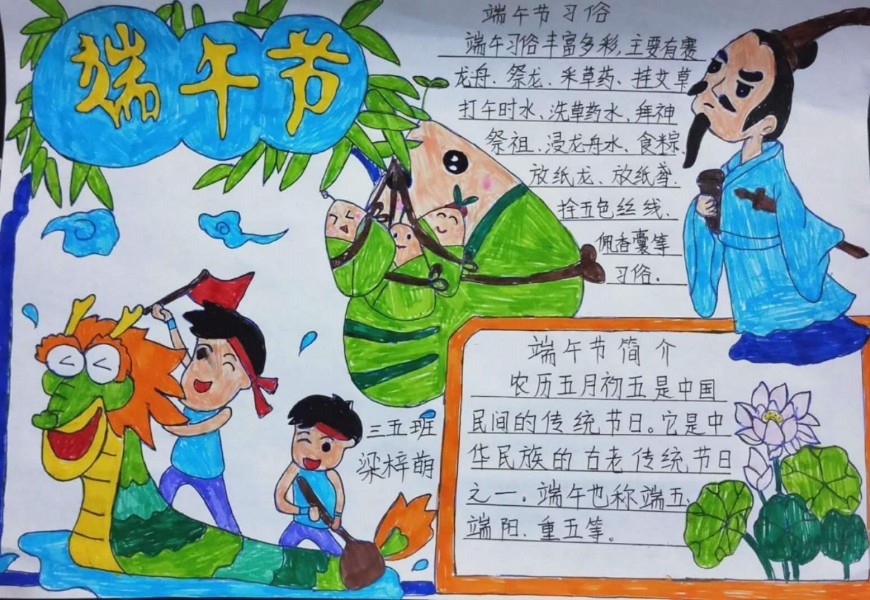 端午节
端午节习俗
端午习俗丰富多彩,主要有赛
龙舟、祭龙、采草药、挂艾草
打午时水、洗草药水、拜神
祭祖、浸龙舟水、食粽、
放纸龙、放纸鸢、
拴五色丝线、
佩香囊等
习俗。
三五班
梁梓萌
端午节简介
农历五月初五是中国
民间的传统节日。它是中
华民族的古老传统节日
之一。端午也称端五、
端阳、重五等。